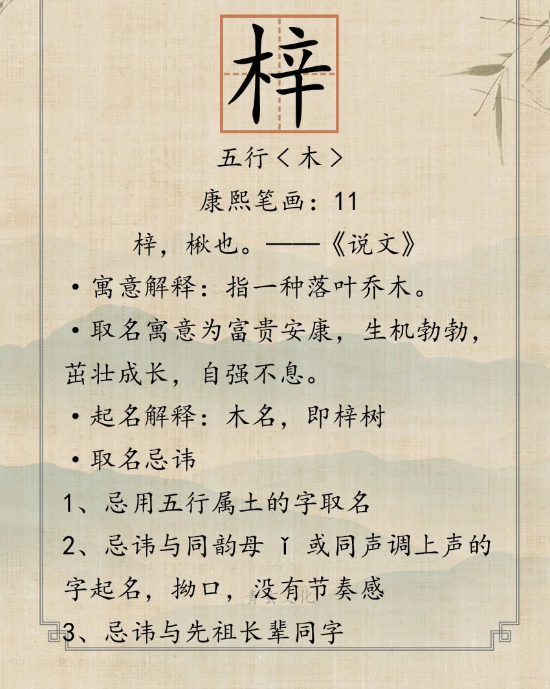 梓
五行<木>
康熙笔画：11
梓，楸也。——《说文》
·寓意解释：指一种落叶乔木。
·取名寓意为富贵安康，生机勃勃，
茁壮成长，自强不息。
·起名解释：木名，即梓树
·取名忌讳
1、忌用五行属土的字取名
2、忌讳与同韵母 丫 或同声调上声的
字起名，拗口，没有节奏感
3、忌讳与先祖长辈同字